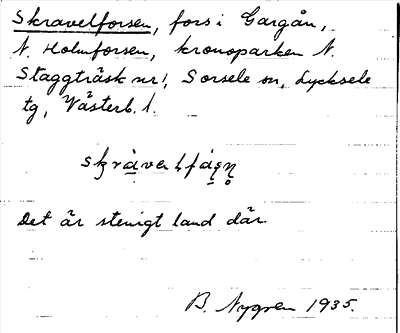 Skravelforsen, fors i Gargån,
N. Holmforsen, kronoparken N.
Staggträsk nr 1, Sorsele sn, Lycksele
tg, Västerb. l.
Det är stenigt land där
B. Nygren 1935.